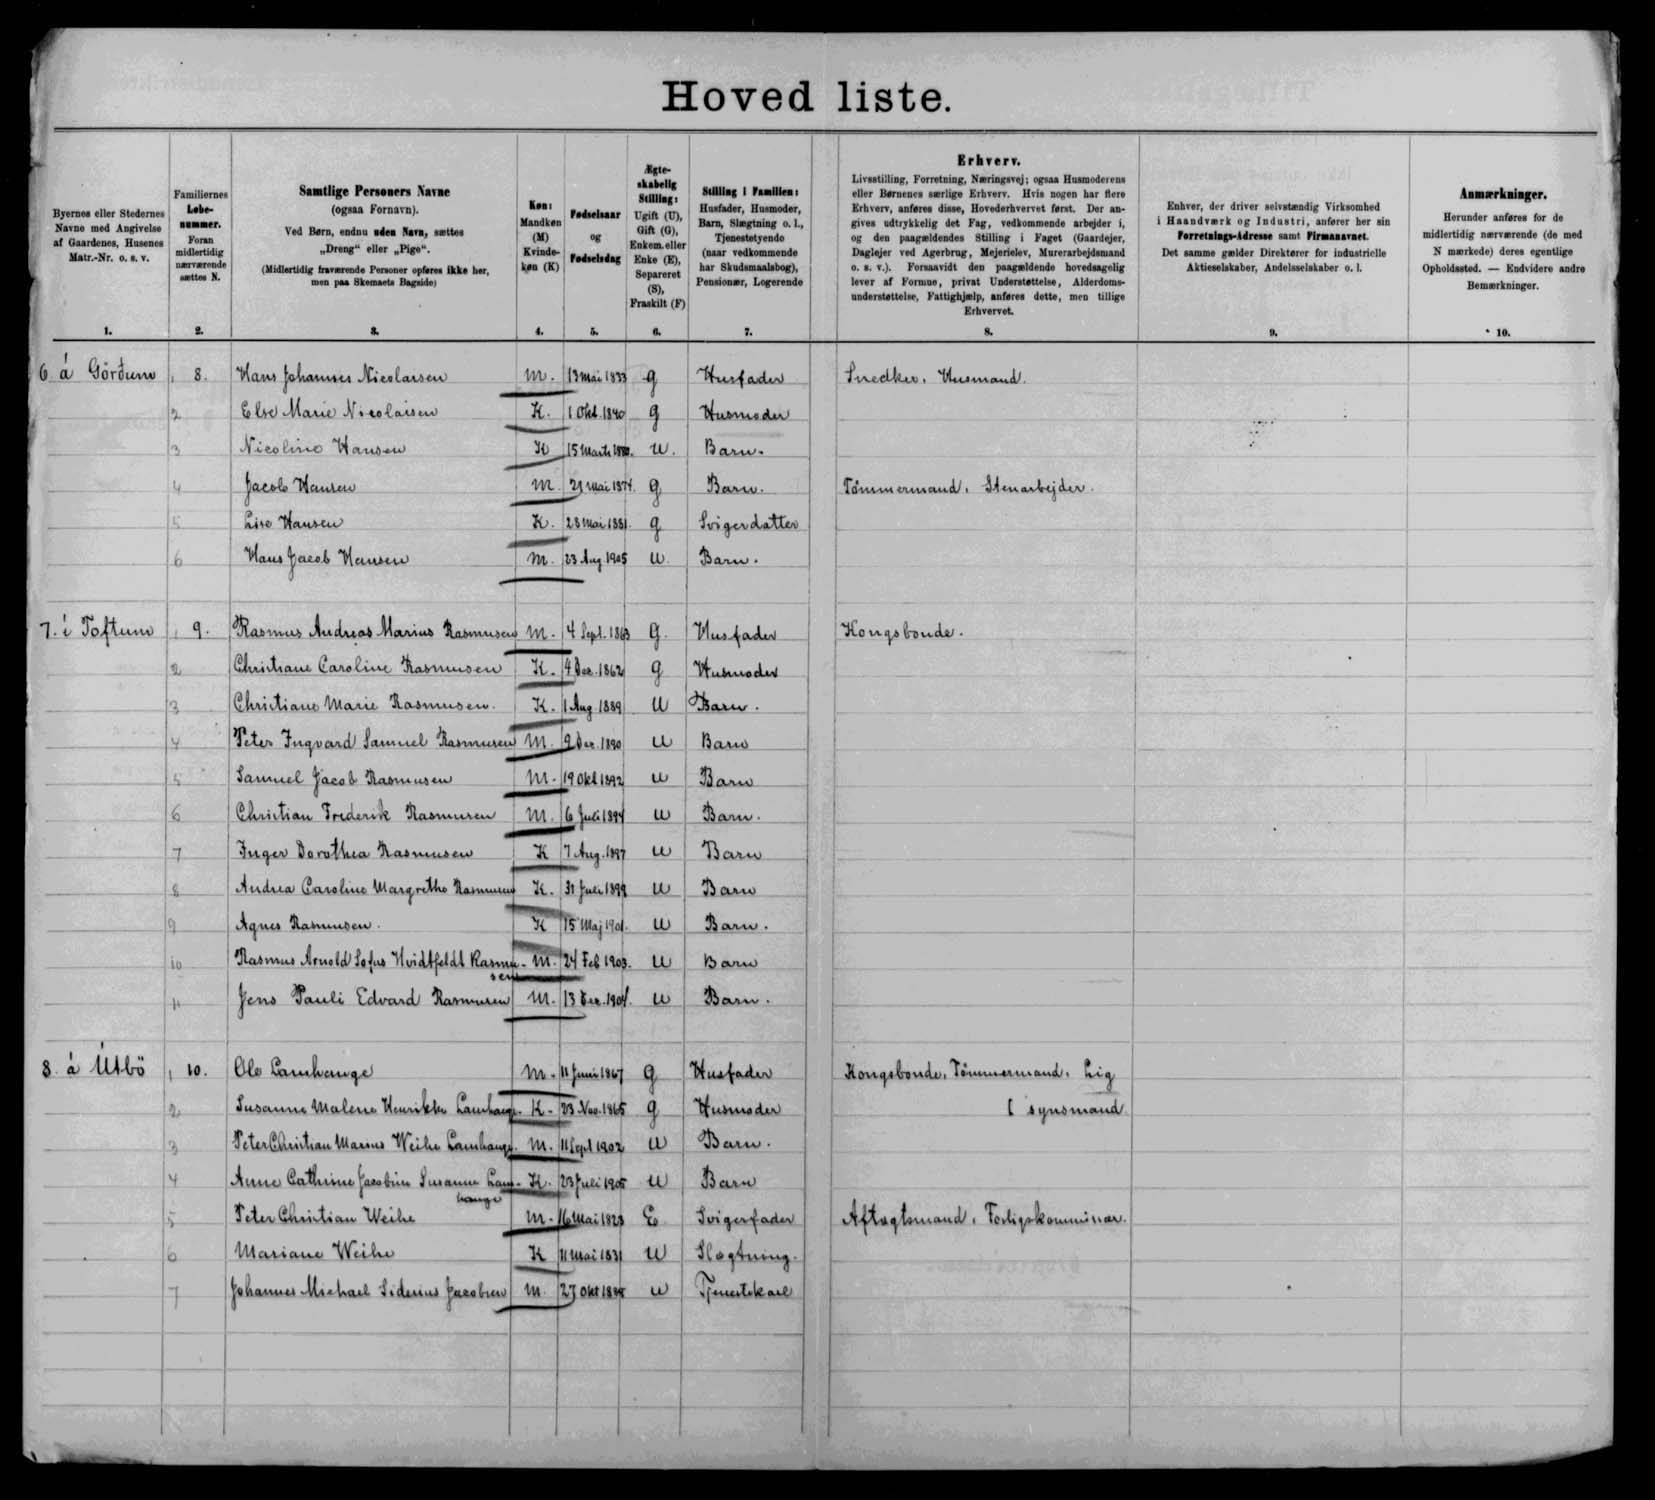 Hoved liste.
Byernes eller Stedernes
Navne med Angivelse
af Gaardenes, Husenes
Matr.-Nr. o. s. v.
1.
Familiernes
Løbe-
nummer.
Foran
midlertidig
nærværende
sættes N.
2.
Samtlige Personers Navne
(ogsaa Fornavn).
Ved Børn, endnu uden Navn, sættes
„Dreng“ eller „Pige“.
(Midlertidig fraværende Personer opføres ikke her,
men paa Skemaets Bagside)
3.
Køn:
Mandkøn
(M)
Kvinde-
køn (K)
4.
Fødselsaar
og
Fødselsdag
5.
Ægte-
skabelig
Stilling:
Ugift (U),
Gift (G),
Enkem. eller
Enke (E),
Separeret
(S),
Fraskilt (F)
6.
Stilling i Familien:
Husfader, Husmoder,
Barn, Slægtning o. l.,
Tjenestetyende
(naar vedkommende
har Skudsmaalsbog),
Pensionær, Logerende
7.
Erhverv.
Livsstilling, Forretning, Næringsvej; ogsaa Husmoderens
eller Børnenes særlige Erhverv. Hvis nogen har flere
Erhverv, anføres disse, Hovederhvervet først. Der an-
gives udtrykkelig det Fag, vedkommende arbejder i,
og den paagældendes Stilling i Faget (Gaardejer,
Daglejer ved Agerbrug, Mejerielev, Murerarbejdsmand
o. s. v.). Forsaavidt den paagældende hovedsagelig
lever af Formue, privat Understøttelse, Alderdoms-
understøttelse, Fattighjælp, anføres dette, men tillige
Erhvervet.
8.
Enhver, der driver selvstændig Virksomhed
i Haandværk og Industri, anfører her sin
Forretnings-Adresse samt Firmanavnet.
Det samme gælder Direktører for industrielle
Aktieselskaber, Andelsselskaber o. l.
9.
Anmærkninger.
Herunder anføres for de
midlertidig nærværende (de med
N mærkede) deres egentlige
Opholdssted. — Endvidere andre
Bemærkninger.
10.
6 á Görðum 1 8. Hans Johannes Nicolaisen M. 13 Mai 1833 G Husfader Snedker, Husmand.
2 Else Marie Nicolaisen K. 1 Okt. 1840 G Husmoder
3 Nicoline Hansen K 15 Marts U. Barn.
4 Jacob Hansen M. 29 Mai 1874. G Barn. Tømmermand, Stenarbejder.
5 Lise Hansen K. 28 Mai 1881. G Svigerdatter
6 Hans Jacob Hansen M. 23 Aug 1905 U. Barn.
7. í Toftum 1 9. Rasmus Andreas Marius Rasmusen M. 4 Sept. 1863 G. Husfader Kongsbonde.
2 Christiane Caroline Rasmusen K. 4 Dec. 1862 G Husmoder
3 Christiane Marie Rasmusen. K. 1 Aug 1889 U Barn.
4 Peter Ingvard Samuel Rasmusen M. 9 Dec. 1890 U Barn
5 Samuel Jacob Rasmusen M. 19 Okt 1892 U Barn
6 Christian Frederik Rasmusen M. 6 Juli 1894 U Barn.
7 Inger Dorothea Rasmusen K 7 Aug. 1897 U Barn
8 Andrea Caroline Margrethe Rasmusen K. 31 Juli 1899 U Barn
9 Agnes Rasmusen. K 15 Maj 1901. U Barn.
10 Rasmus Arnold Sofus Hvidtfeldt Rasmu- M. 24 Feb 1903. U Barn
sen
11 Jens Pauli Edvard Rasmusen M. 13 Dec. 1904. U Barn.
8. á Útbö 1 10. Ole Lamhauge M. 11 Juni 1867 G Husfader Kongsbonde, Tømmermand, Lig
2 Susanne Malene Henrikke Lamhauge K. 23 Nov. 1865 G Husmoder [ synsmand
3 Peter Christian Marius Weihe Lamhauge M. 11 Sept 1902 U Barn.
4 Anne Cathrine Jacobine Susanne Lam- K. 23 Juli 1905 U Barn
hauge
5 Peter Christian Weihe M. 16 Mai 1823 E. Svigerfader Aftægtsmand, Forligskommissær.
6 Mariane Weihe K 11 Mai 1831 U Slægtning.
7 Johannes Michael Siderius Jacobsen M. 27 Okt U Tjenestekarl